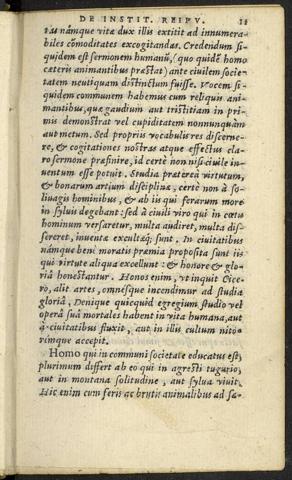 DE INSTIT. REIPV.
nam námque vita dux illis extitit ad innumera-
biles cõmoditates excogitandas. Credendum si-
quidem est sermonem humanũ, (quo quidẽ homo
cæteris animantibus præstat) ante ciuilem socie-
tatem neutiquam distinctum fuisse. Vocem si-
quidem communem habemus cum reliquis ani-
mantibus, quæ gaudium aut tristitiam in pri-
mis demonstrat vel cupiditatem nonnunquam
aut metum. Sed propriis vocabulis res discerne-
re, & cogitationes nostras atque effectus cla-
ro sermone præfinire, id certè non nisi ciuile in-
uentum esse potuit. Studia prætereà virtutum,
& bonarum artium disciplina, certè non à so-
liuagis hominibus, & ab iis qui ferarum more
in syluis degebant: sed à ciuili viro qui in cœtu
hominum versaretur, multa audiret, multa dis-
sereret, inuenta excultaq́; sunt. In ciuitatibus
námque benè moratis præmia proposita sunt iis
qui virtute aliqua excellunt: & honore & glo-
riâ honestantur. Honos enim, vt inquit Cice-
ro, alit artes, omnésque incendimur ad studia
gloriâ, Denique quicquid egregium studio vel
operâ suâ mortales habent in vita humana, aut
à ciuitatibus fluxit, aut in illis cultum nito-
rémque accepit.
Homo qui in communi societate educatus est,
plurimum differt ab eo qui in agresti tugurio,
aut in montana solitudine, aut sylua viuit.
Hic enim cum feris ac brutis animalibus ad sa-